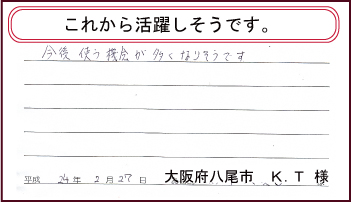 これから活躍しそうです。
今後使う機会が多くなりそうです
平成 24年 2月 27日 大阪府八尾市 K.T 様